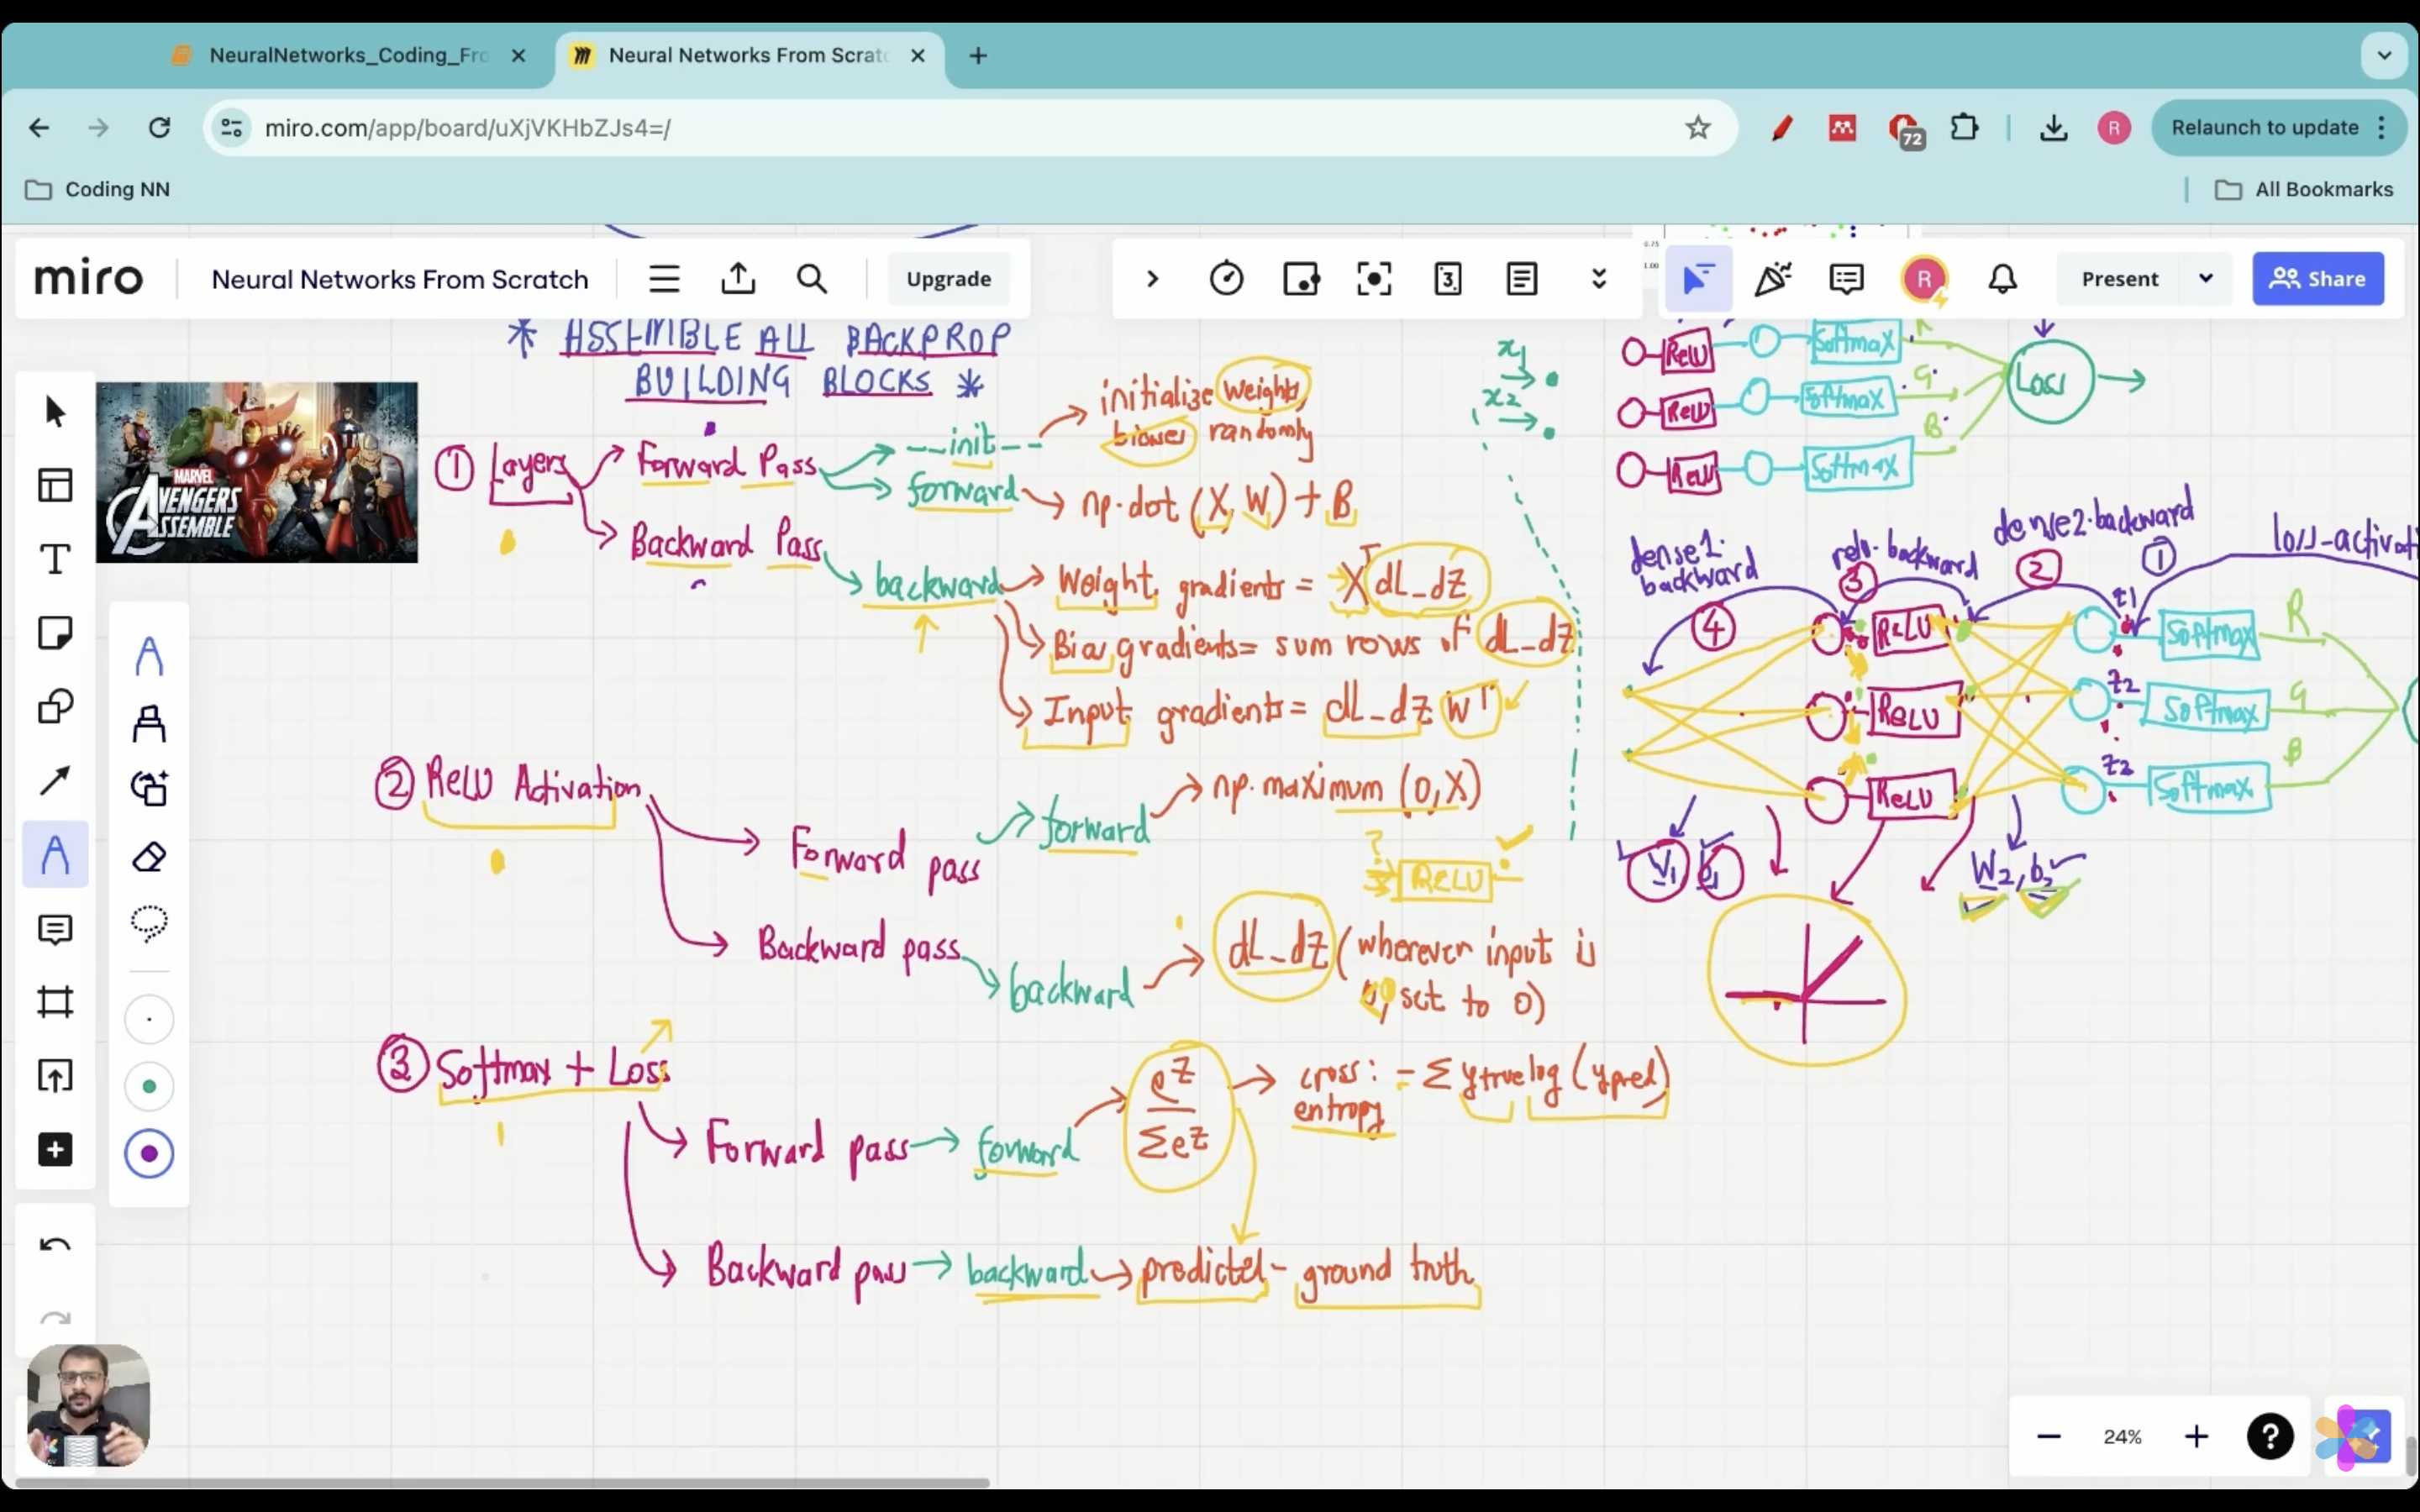 NeuralNetworks_Coding_Fro
Neural Networks From Scratc
miro.com/app/board/uXjVKHbZJs4=/
72
R
Relaunch to update
Coding NN
All Bookmarks
miro
Neural Networks From Scratch
Upgrade
3
R
Present
Share
0.75
1.00
* ASSEMBLE ALL BACKPROP
BUILDING BLOCKS *
MARVEL
AVENGERS
ASSEMBLE
① Layers
Forward Pass
__init__
initialize weights,
biases randomly
forward
np.dot (X, W) + B
Backward Pass
backward
Weight gradients = X^T dL_dZ
Bias gradients = sum rows of dL_dZ
Input gradients = dL_dZ W^T
② ReLU Activation
Forward pass
forward
np.maximum (0, X)
?
ReLU
Backward pass
backward
dL_dZ (wherever input is
set to 0)
③ Softmax + Loss
Forward pass
forward
e^Z
Σe^Z
cross: - Σ ytrue log (ypred)
entropy
Backward pass
backward
predicted - ground truth
x1
x2
ReLU
Softmax
R
ReLU
Softmax
G
Loss
ReLU
Softmax
B
dense1.
backward
relu.backward
dense2.backward
loss-activati
①
②
③
④
ReLU
z1
Softmax
R
ReLU
z2
Softmax
G
ReLU
Softmax
B
b1
W2, b2
24%
?